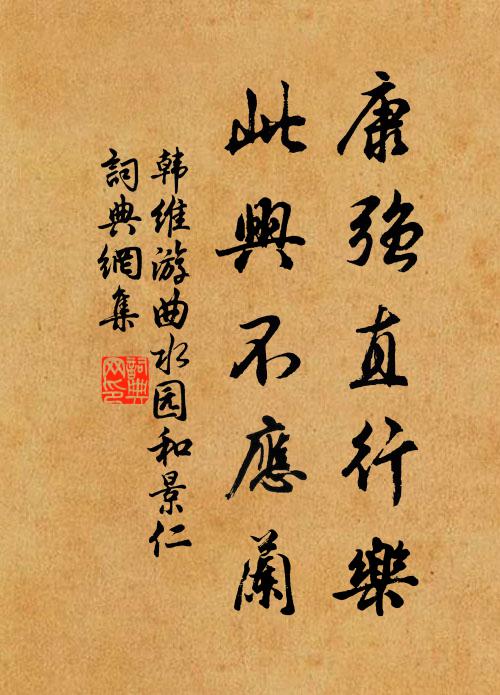 康强直行樂
此興不應蘭
韩维游曲水园和景仁
詞典網集
詞典网印